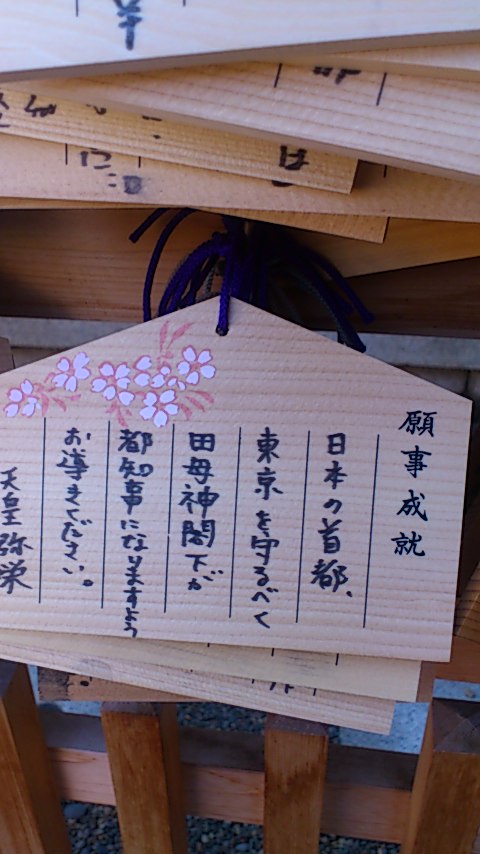 願事成就
日本の首都、
東京を守るべく
田母神閣下が
都知事になりますよう
お導きください。
天皇弥栄